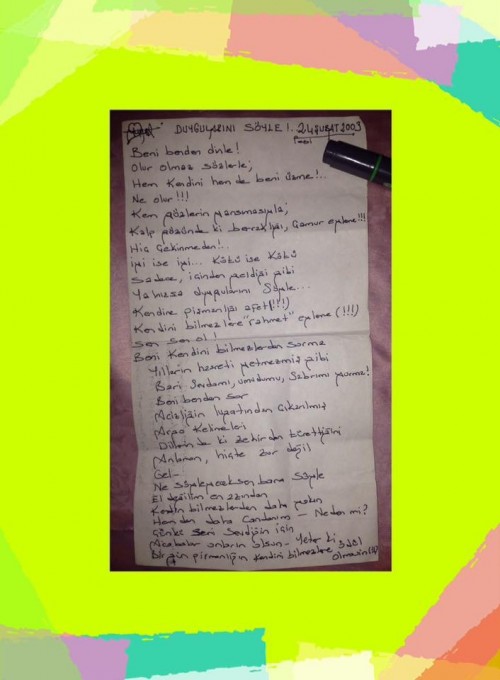 DUYGULARINI SÖYLE!.. 24 ŞUBAT 2003
Beni benden dinle!
Olur olmaz sözlerle;
Hem Kendini hem de beni üzme!..
Ne olur!!!
Kem gözlerin yansımasıyla;
Kalp gözünde ki berraklığı, Çamur eyleme!!!
Hiç Çekinmeden!..
İyi ise iyi... Kötü ise Kötü
Sadece, içinden geldiği gibi
Yalnızca duygularını Söyle...
Kendine pişmanlığı (!!!)
Kendini bilmezlere "rahmet" eyleme (!!!)
Sen sen ol!
Beni Kendini bilmezlerden sorma
Yılların hasreti yetmezmiş gibi
Bari Sevdamı, umudumu, Sabrımı yorma!
Beni benden sor
Acizliğin lügatından Çıkarılmış
Kelimeleri
Dillerinde ki Zehirden türettiğini
Anlaman, hiçte zor değil
Gel-!
Ne Söyleyeceksen bana Söyle
El değilim en azından
Kendin bilmezlerden daha yakın
Hem den daha Candanım - Neden mi?
Çünkü Seni Sevdiğin için
Acabalar onların olsun - Yeter ki
Bir gün pişmanlığın Kendini bilmezlere
Olmasın (!!)